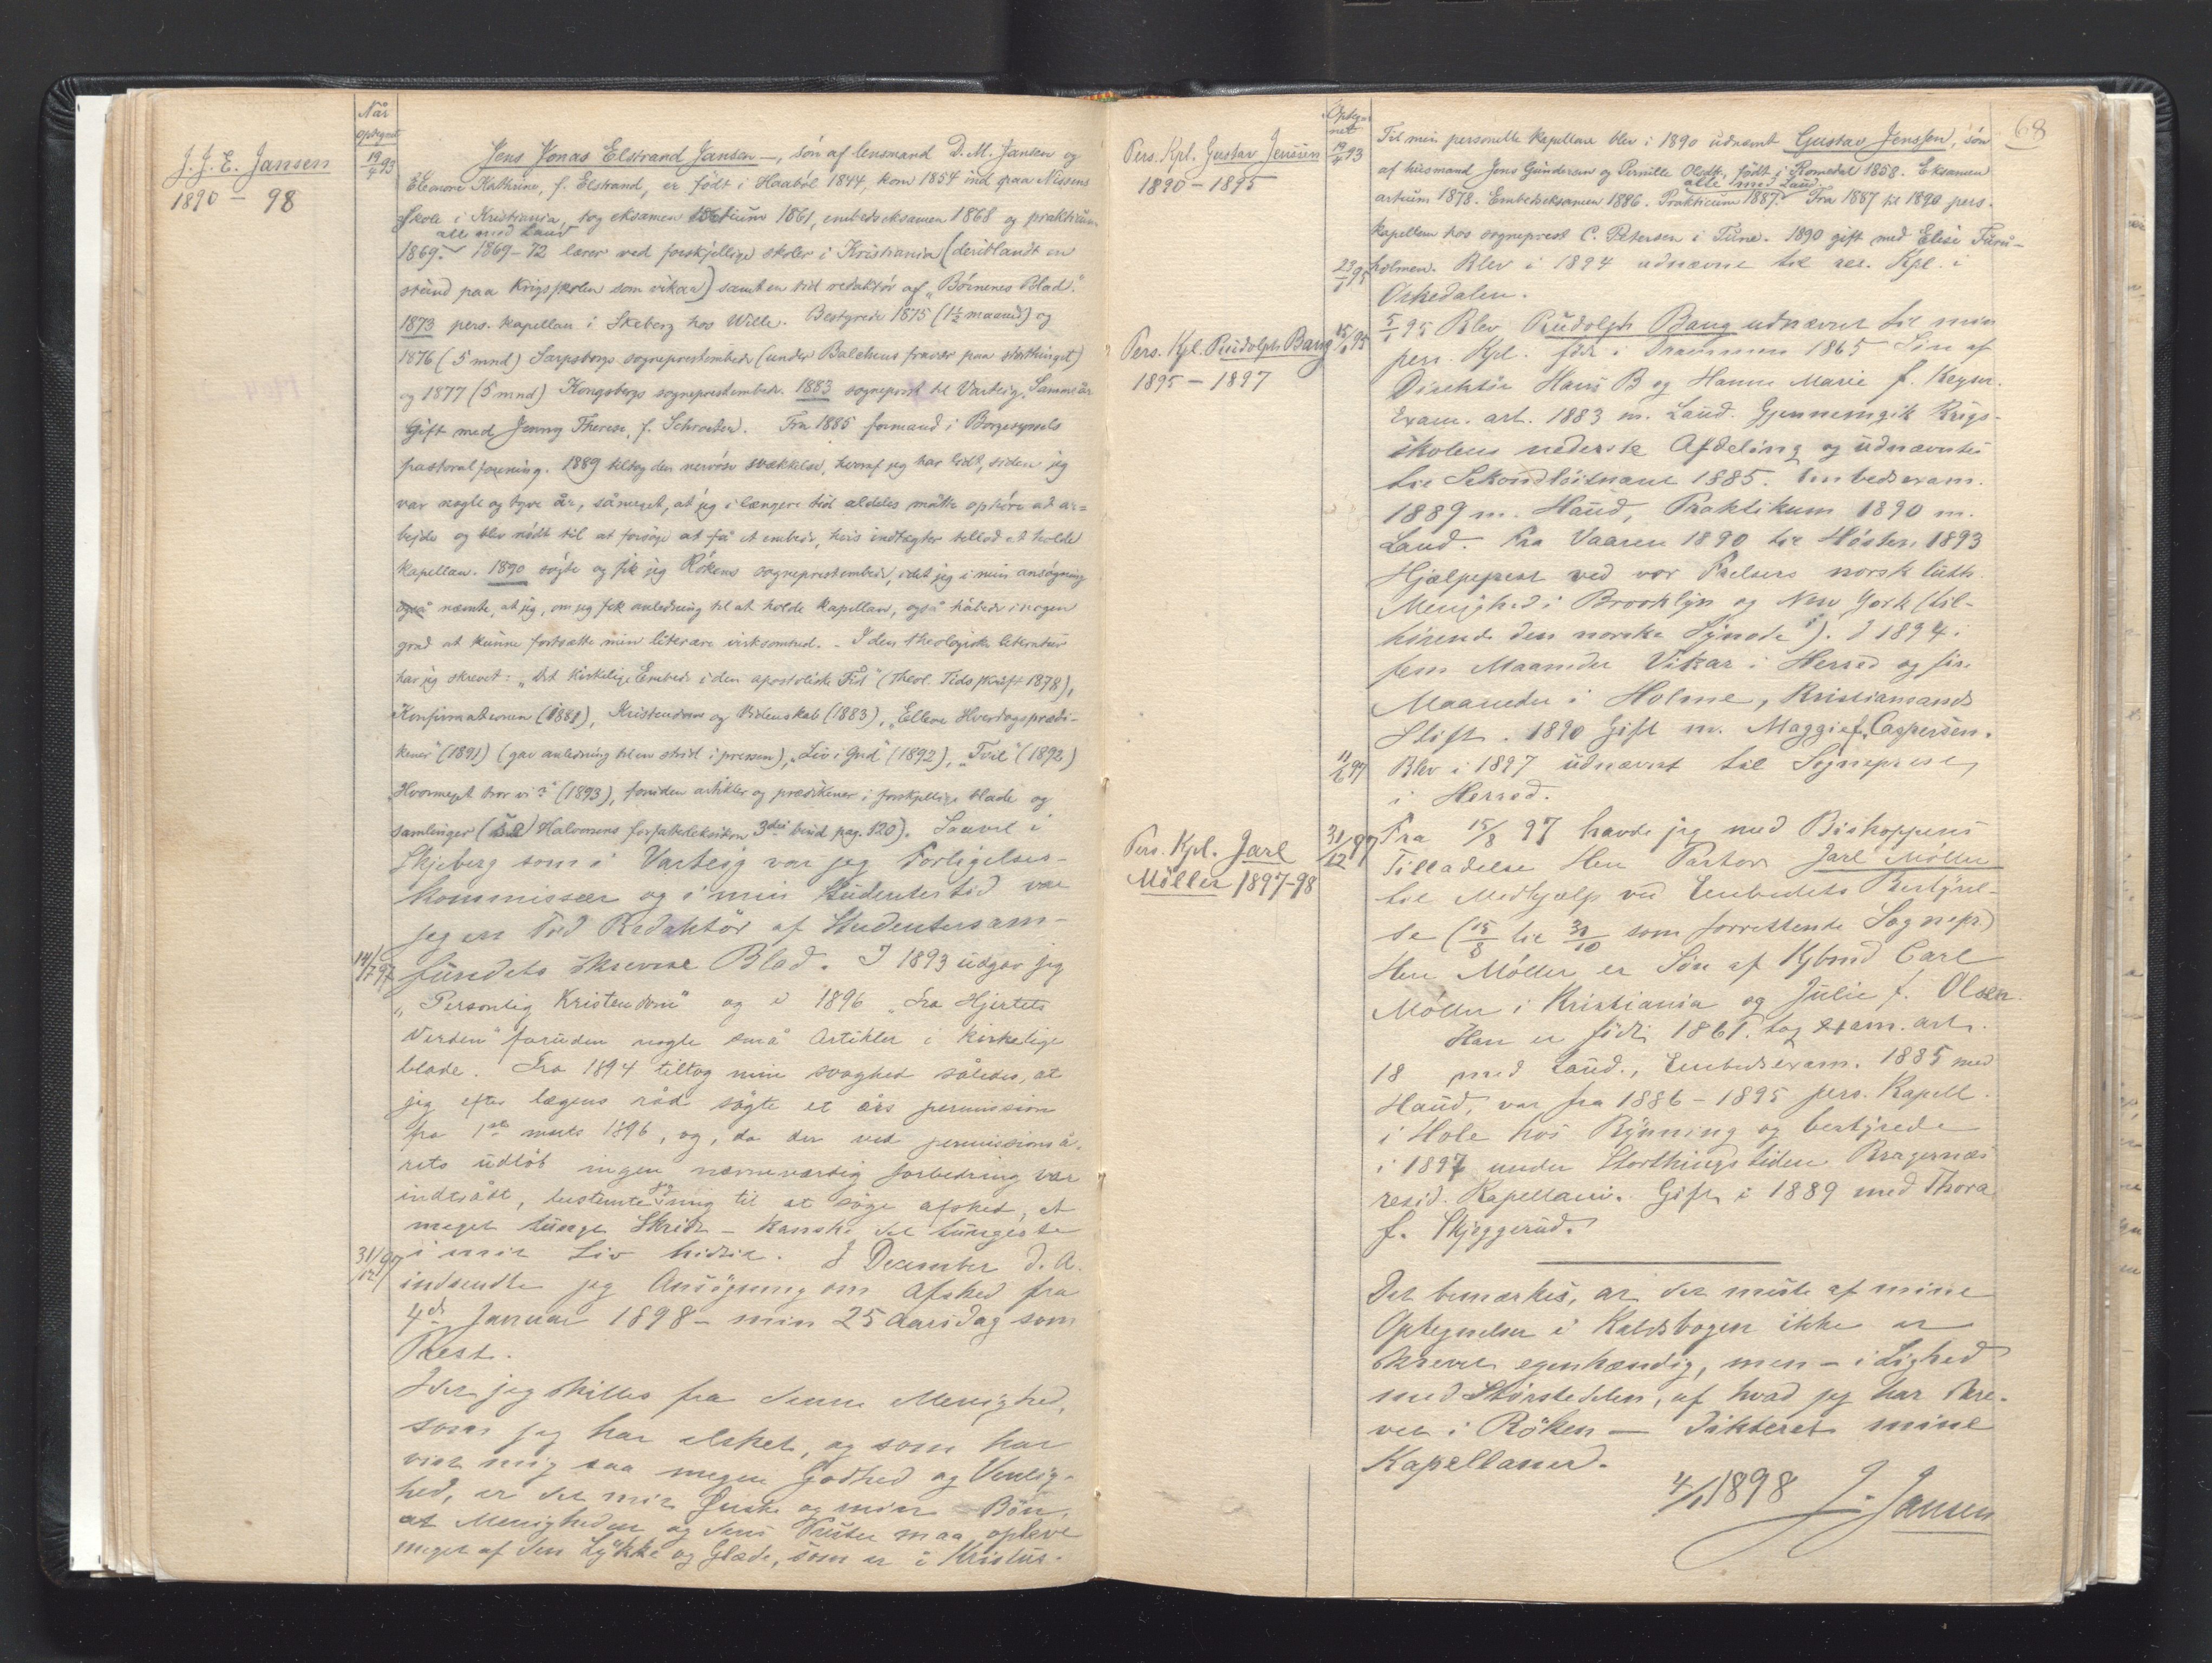 Når
optegnet
J. J. E. Jansen
1890 – 98
19/4 93
Jens Jonas Elstrand Jansen –, søn af lensmand D. M. Jansen og
Eleonore Kathrine, f. Elstrand, er født i Haabøl 1844, kom 1854 ind paa Nissens
Skole i Kristiania, tog eksamen artium 1861, embedseksamen 1868 og praktikum
alle med Laud
1869. 1869–72 lærer ved forskjellige skoler i Kristiania (deriblandt en
stund paa Krigsskolen som vikar) samt en tid redaktør af „Børnenes Blad."
1873 pers. kapellan i Skeberg hos Wille. Bestyrede 1875 (1½ maaned) og
1876 (5 mnd) Sarpsborgs sogneprestembede (under Balchens fravær paa storthinget)
og 1877 (5 mnd) Kongsbergs sogneprestembede. 1883 sogneprest til Varteig. Samme år
Gift med Jenny Therese, f. Schroeder. Fra 1885 formand i Borgesyssels
pastoralforening. 1889 tiltog den nervøse svækkelse, hvoraf jeg har lidt, siden jeg
var nogle og tyve år, såmeget, at jeg i længere tid aldeles måtte ophøre at ar=
bejde og blev nødt til at forsøge at få et embede, hvis indtægter tillod at holde
kapellan. 1890 søgte og fik jeg Røkens sogneprestembede, idet jeg i min ansøgning
også nævnte, at jeg, om jeg fik anledning til at holde kapellan, også håbede i nogen
grad at kunne fortsætte min literære virksomhed. – I den theologiske literatur
har jeg skrevet: „Det kirkelige Embede i den apostoliske Tid" (Theol. Tidsskrift 1878),
Konfirmationen (1881), Kristendom og Videnskab (1883), „Elleve Hverdagsprædi-
kener" (1891) (gav anledning til en strid i pressen), „Liv i Gud" (1892), „Tvil" (1892)
„Hvormeget tror vi?" (1893), foruden artikler og prædikener i forskjellige blade og
samlinger (se Halvorsens forfatterleksikon 3die bind pag. 120). Saavel i
Skjeberg som i Varteig var jeg Forligelses-
kommissær og i min Studentertid var
jeg en Tid Redaktør af Studentersam-
14/7 97
fundets skrevne Blad. I 1893 udgav jeg
„Personlig Kristendom" og i 1896 „Fra Hjertets
Verden" foruden nogle små Artikler i kirkelige
blade. Fra 1894 tiltog min svaghed således, at
jeg efter lægens råd søgte et års permission
fra 1ste marts 1896, og, da der ved permissionså-
rets udløb ingen nævneværdig forbedring var
indtrådt, bestemte jeg mig til at søge afsked, et
meget tungt Skridt – kanske det tungeste
31/12 97
i mit Liv hidtil. I December d. A.
indsendte jeg Ansøgning om Afsked fra
4de Januar 1898 – min 25 aarsdag som
Prest.
Idet jeg skilles fra denne Menighed,
som jeg har elsket, og som har
vist mig saa megen Godhed og Venlig-
hed, er det mit Ønske og min Bøn,
at Menigheden og dens Prester maa opleve
meget af den Lykke og Glæde, som er i Kristus.
68
Opteg-
net
Pers. Kpl. Gustav Jenssen
1890 – 1895
19/4 93
Til min personelle kapellan blev i 1890 udnævnt Gustav Jenssen, søn
af husmand Jens Gundersen og Pernille Olsdt., født i Romedal 1858. Eksamen
alle med Laud
artium 1878. Embedseksamen 1886. Praktikum 1887. Fra 1887 til 1890 pers.
kapellan hos sogneprest C. Petersen i Tune. 1890 gift med Elise Furu-
23/1 95
holmen. Blev i 1894 udnævnt til res. Kpl. i
Orkedalen.
Pers. Kpl. Rudolph Bang
1895 – 1897
15/1 95
5/1 95 Blev Rudolph Bang udnævnt til min
pers. Kpl. født i Drammen 1865 Søn af
Direktør Hans B og Hanne Marie f. Keyser.
Exam. art. 1883 m. Laud. Gjennemgik Krigs-
skolens nederste Afdeling og udnævntes
til Sekondløitnant 1885. Embedsexam.
1889 m. Haud, Praktikum 1890 m.
Laud. Fra Vaaren 1890 til Høsten 1893
Hjælpeprest ved vor Frelsers norsk luth.
Menighed i Brooklyn og New York (til-
hørende den norske Synode). I 1894 i
fem Maaneder Vikar i Herred og fire
Maaneder i Holme, Kristiansands
Stift. 1890 Gift m. Maggie f. Caspersen.
11/6 97
Blev i 1897 udnævnt til Sogneprest
i Herred.
Pers. Kpl. Jarl
Møller 1897-98
31/12 97
Fra 15/8 97 havde jeg med Biskoppens
Tilladelse Herr Pastor Jarl Møller
til Medhjælp ved Embedets Bestyrel-
se (15/8 til 31/10 som forrettende Sognepr.)
Herr Møller er Søn af Kjbmd Carl
Møller i Kristiania og Julie f. Olsen.
Han er født 1861. tog exam. art.
18 med Laud., Embedsexam. 1885 med
Haud, var fra 1886 – 1895 pers. Kapell.
i Hole hos Rynning og bestyrede
i 1897 under Storthingstiden Bragernæs
resid. Kapellani. Gift i 1889 med Thora
f. Skjeggerud.
Det bemærkes, at det meste af mine
Optegnelser i Kaldsbogen ikke er
skrevet egenhændig, men – i Lighed
med Størstedelen, af hvad jeg har skre-
vet i Røken – dikteret mine
Kapellaner.
4/1 1898 J. Jansen